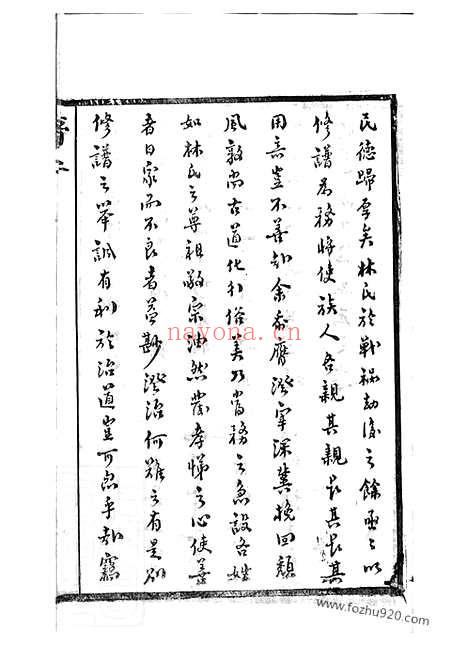 民德歸厚矣林氏於戰禍劫後之餘亟亟以
修譜為務將使族人各親其親長其長其
用意豈不善哉余忝膺澄宰深冀挽回頹
風敦尚古道化行俗美乃當務之急設各姓
如林氏之尊祖敬宗油然發孝悌之心使善
者日眾而不良者益尠澄治何難之有是則
修譜之舉誠有利於治道豈可忽乎哉竊
nayona.cn
www.fozhu920.com